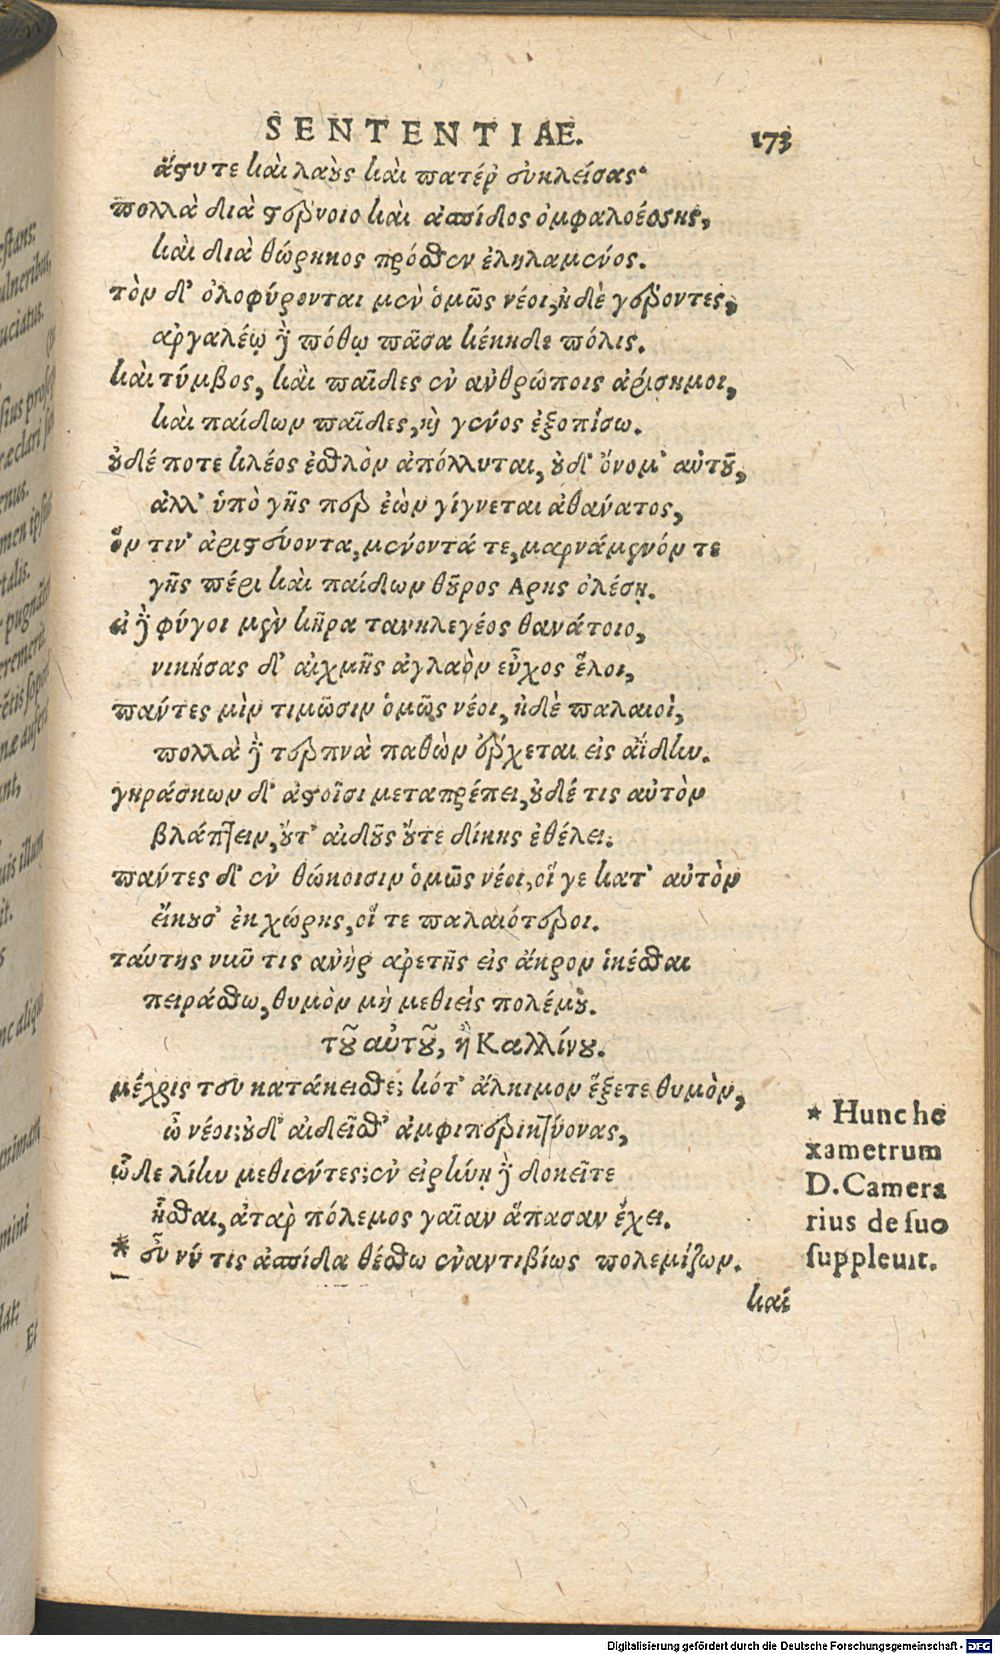 SENTENTIAE. 173
ἄστυ τε καὶ λαοὺς καὶ πατέρ' εὐκλείσας·
πολλὰ διὰ στέρνοιο καὶ ἀσπίδος ὀμφαλοέσσης,
καὶ διὰ θώρηκος πρόσθεν ἐληλαμένος.
τὸν δ' ὀλοφύρονται μὲν ὁμῶς νέοι, ἠδὲ γέροντες,
ἀργαλέῳ δὲ πόθῳ πᾶσα κέκηδε πόλις.
καὶ τύμβος, καὶ παῖδες ἐν ἀνθρώποις ἀρίσημοι,
καὶ παίδων παῖδες, καὶ γένος ἐξοπίσω.
οὐδέ ποτε κλέος ἐσθλὸν ἀπόλλυται, οὐδ' ὄνομ' αὐτοῦ,
ἀλλ' ὑπὸ γῆς περ ἐὼν γίγνεται ἀθάνατος,
ὅν τιν' ἀριστεύοντα, μένοντά τε, μαρνάμενόν τε
γῆς πέρι καὶ παίδων θοῦρος Αρης ὀλέσῃ.
εἰ δὲ φύγοι μὲν κῆρα τανηλεγέος θανάτοιο,
νικήσας δ' αἰχμῆς ἀγλαὸν εὖχος ἕλοι,
πάντες μὶν τιμῶσιν ὁμῶς νέοι, ἠδὲ παλαιοὶ,
πολλὰ δὲ τερπνὰ παθὼν ἔρχεται εἰς ἀΐδην.
γηράσκων δ' ἀστοῖσι μεταπρέπει, οὐδέ τις αὐτὸν
βλάπτειν, οὔτ' αἰδοῦς οὔτε δίκης ἐθέλει.
πάντες δ' ἐν θώκοισιν ὁμῶς νέοι, οἵ γε κατ' αὐτὸν
εἴκουσ' ἐκ χώρης, οἵ τε παλαιότεροι.
ταύτης νῦν τις ἀνὴρ ἀρετῆς εἰς ἄκρον ἱκέσθαι
πειράσθω, θυμὸν μὴ μεθιεὶς πολέμου.
τοῦ αὐτοῦ, ἢ Καλλίνου.
μέχρις τευ κατάκεισθε; κότ' ἄλκιμον ἕξετε θυμὸν,
ὦ νέοι; οὐδ' αἰδεῖσθ' ἀμφιπερικτύονας,
ὧδε λίην μεθιέντες; ἐν εἰρήνῃ δὲ δοκεῖτε
ἧσθαι, ἀτὰρ πόλεμος γαῖαν ἅπασαν ἔχει.
* εὖ νύ τις ἀσπίδα θέσθω ἐναντιβίως πολεμίζων.
καί
* Hunc he
xametrum
D. Camera
rius de suo
suppleuit.
Digitalisierung gefördert durch die Deutsche Forschungsgemeinschaft - DFG